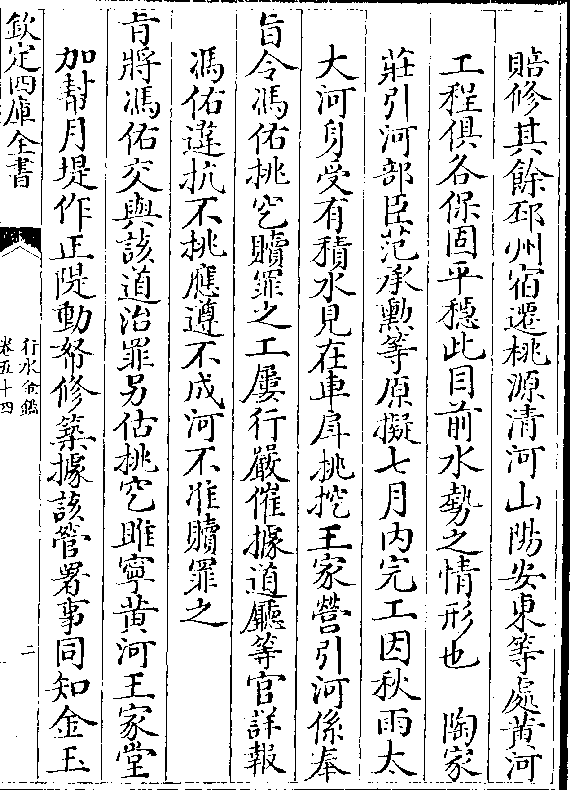 賠修其餘邳州宿遷桃源清河山陽安東等處黄河
工程俱各保固平穩此目前水勢之情形也　陶家
莊引河部臣范承勲等原擬七月内完工因秋雨太
大河身受有積水見在車戽挑挖王家營引河係奉
旨令馮佑挑穵贖罪之工屢行嚴催據道廳等官詳報
馮佑違抗不挑應遵不成河不准贖罪之
旨將馮佑交與該道治罪另估挑穵睢寧黄河王家堂
加幫月堤作正隄動帑修築據該管署事同知金玉
欽定四庫全書
行水金鑑
卷五十四
二